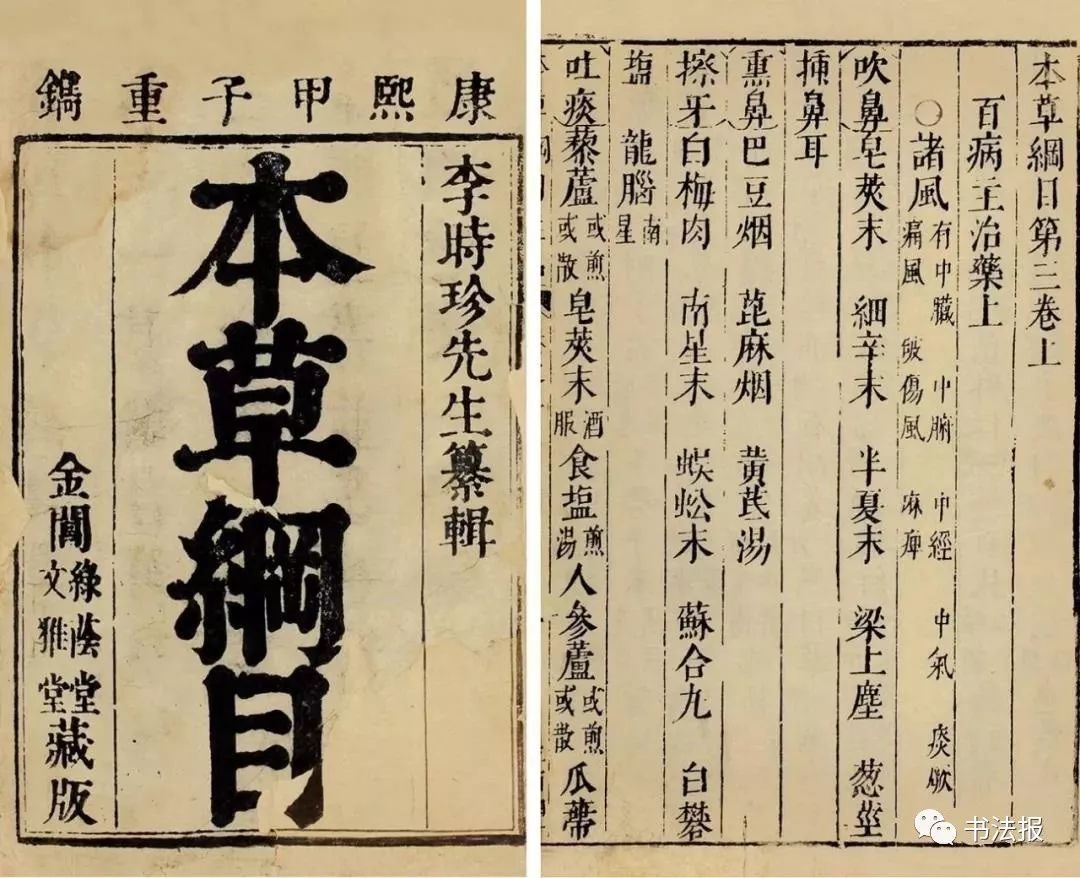 康熙甲子重鐫
李時珍先生纂輯
本草綱目
金閶綠蔭堂文雅堂藏版
本草綱目第三卷上
百病主治藥上
○諸風有中臟 中腑 中經 中氣 痰厥
痛風 破傷風 麻痺
吹鼻皂莢末 細辛末 半夏末 梁上塵 葱莖
插鼻耳
熏鼻巴豆烟 萞麻烟 黄芪湯
擦牙白梅肉 南星末 蜈蚣末 蘇合丸 白礬
塩 龍腦南星
吐痰藜蘆或煎或散皂莢末酒服食塩煎湯人參蘆或煎或散瓜蒂
书法报